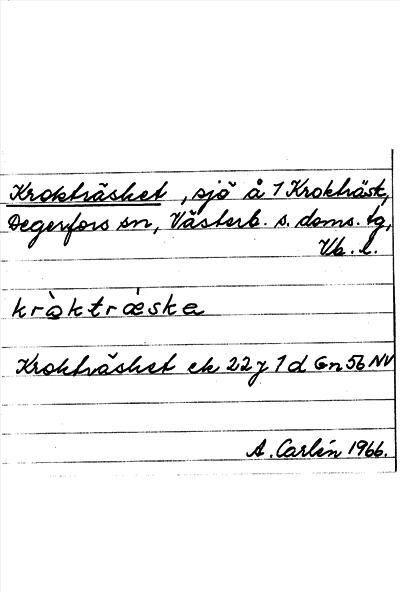 Krokträsket, sjö å 1 Krokträsk,
Degerfors sn, Västerb. s. doms. tg,
Vb. l.
kròktræ̀ske
Krokträsket ek 22 J 1 d Gn 56 NV
A. Carlén 1966.